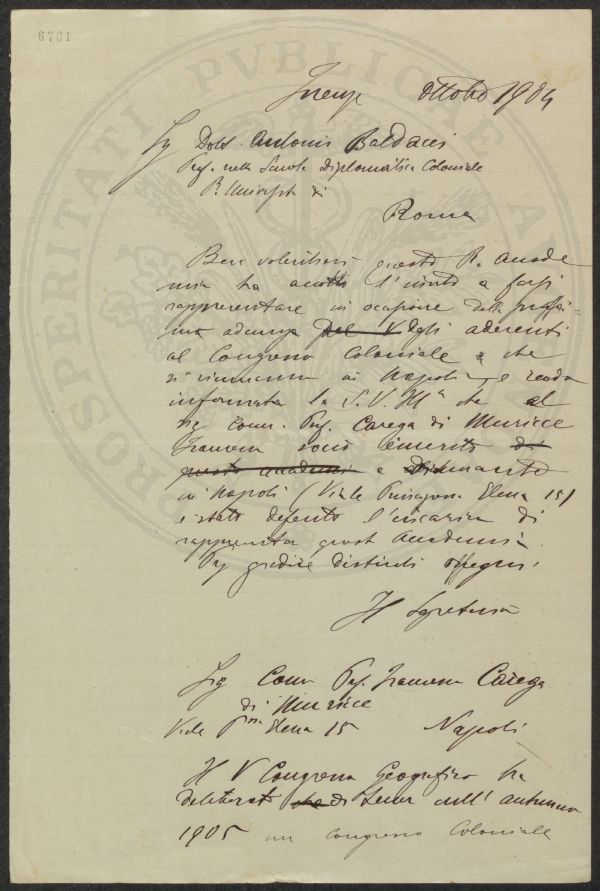 6761
PROSPERITATI PUBLICAE AU
Firenze ottobre 1904
Sig Dott. Antonio Baldacci
Prof. nella Scuola diplomatica Coloniale
R. Università di
Roma
Ben volentieri questa R. Accade
mia ha accolto l'invito a farsi
rappresentare in occasione della prossi=
ma adunanza del V degli aderenti
al Congresso Coloniale che
si riunirà in Napoli e rendo
informata la S. V. Ill.a che al
sig comm. Prof. Carega di Muricce
Francesco socio emerito di
questa accademia e dimorante
in Napoli (Viale Principessa Elena 15)
è stato deferito l'incarico di
rappresentar quest Accademia.
gradire distinti ossequi
Il Segretario
Sig Comm Prof. Francesco Carega
di Muricce
Viale Pssa Elena 15 Napoli
Il V Congresso Geografico ha
deliberato di tener nell' autunno
1905 un congresso Coloniale